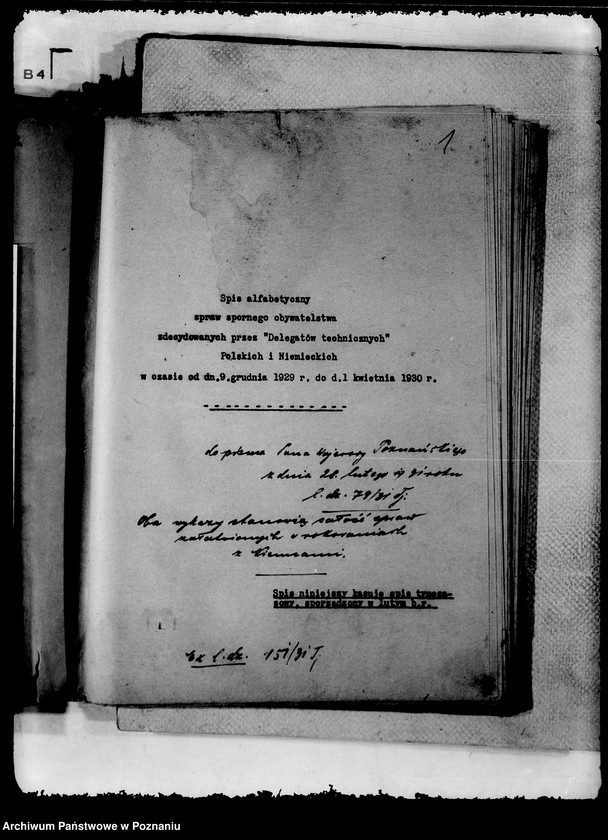 B4
1
Spis alfabetyczny
spraw spornego obywatelstwa
zdecydowanych przez "Delegatów technicznych"
Polskich i Niemieckich
w czasie od dn.9.grudnia 1929 r. do d.1 kwietnia 1930 r.
do pisma Pana Wojewody Poznańskiego
z dnia 28 lutego 31 roku
l. dz. 79/31 T.
Oba wykazy stanowią całość spraw
załatwionych w rokowaniach
z Niemcami.
Spis niniejszy kasuje spis tymcza-
sowy, sporządzony w lutym b.r.
l. dz. 151/31 T.
Archiwum Państwowe w Poznaniu